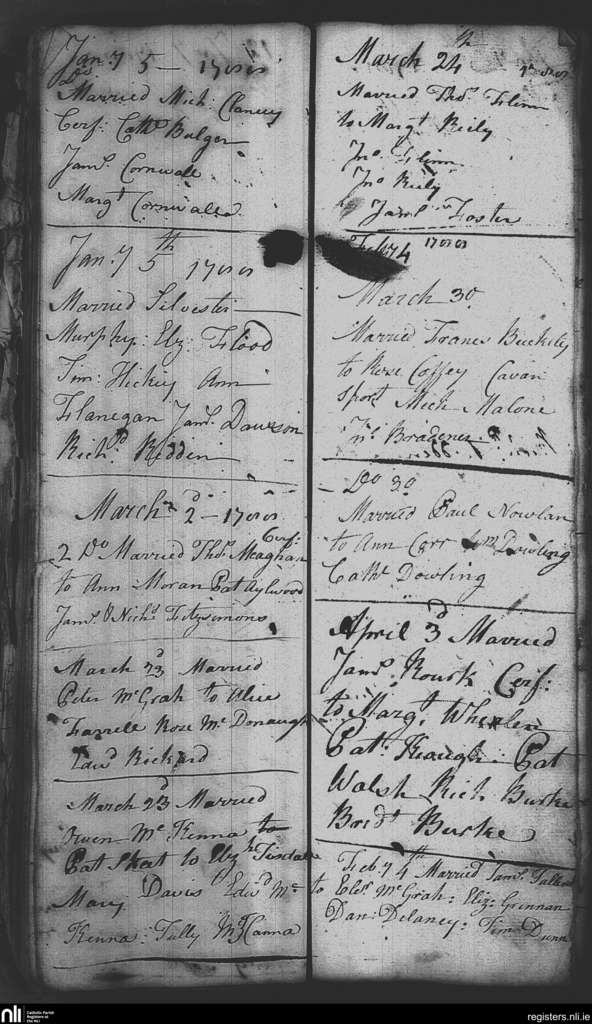 Jan.y 5 — 1788
Do
Married Mich: Clancy
Cerf: Cathe Bulger
Jams. Cornwall
Margt Cornwall
Jan.y 5th 1788
Married Silvester
Murphy: Elz: Flood
Tim: Hickey Ann
Flanegan Jams. Dawson
Richd. Redden
March 2d — 1788
Cerf:
2 Do Married Thos. Meaghan
to Ann Moran Pat Aylwood
Jams. & Nichs Fitzsimons
March 23d Married
Peter McGrah to Alice
Farrell Rose Mc Donaugh
Edwd Rickard
March 23d Married
Owen Mc Kenna to
Pat Skat to Elzh Tisdale
Mary Davis Edwd Mc
Kenna: Tully McKanna
March 24th 1788
Married Thos. Flinn
to Margt Reily
Jno. Flinn
Jno Reily
Jams Foster
Feb 74 1788
March 30
Married Frances
to Rose Coffey Cavan
Spors Mich Malone
Jno. Bradener
Do 30
Married Paul Nowlan
to Ann Carr Wm Dowling
Cathe Dowling
April 3d Married
Jams. Rourk Cerf:
to Margt. Whealen
Pat: Keaugh: Pat
Walsh Rich Burke
Bridt Burke
Feb: 74th Married Jams. Tallon
to Eler McGrah: Eliz: Grennan
Dan: Delaney: Timy Dunn
nli Catholic Parish
Registers at
the NLI
registers.nli.ie